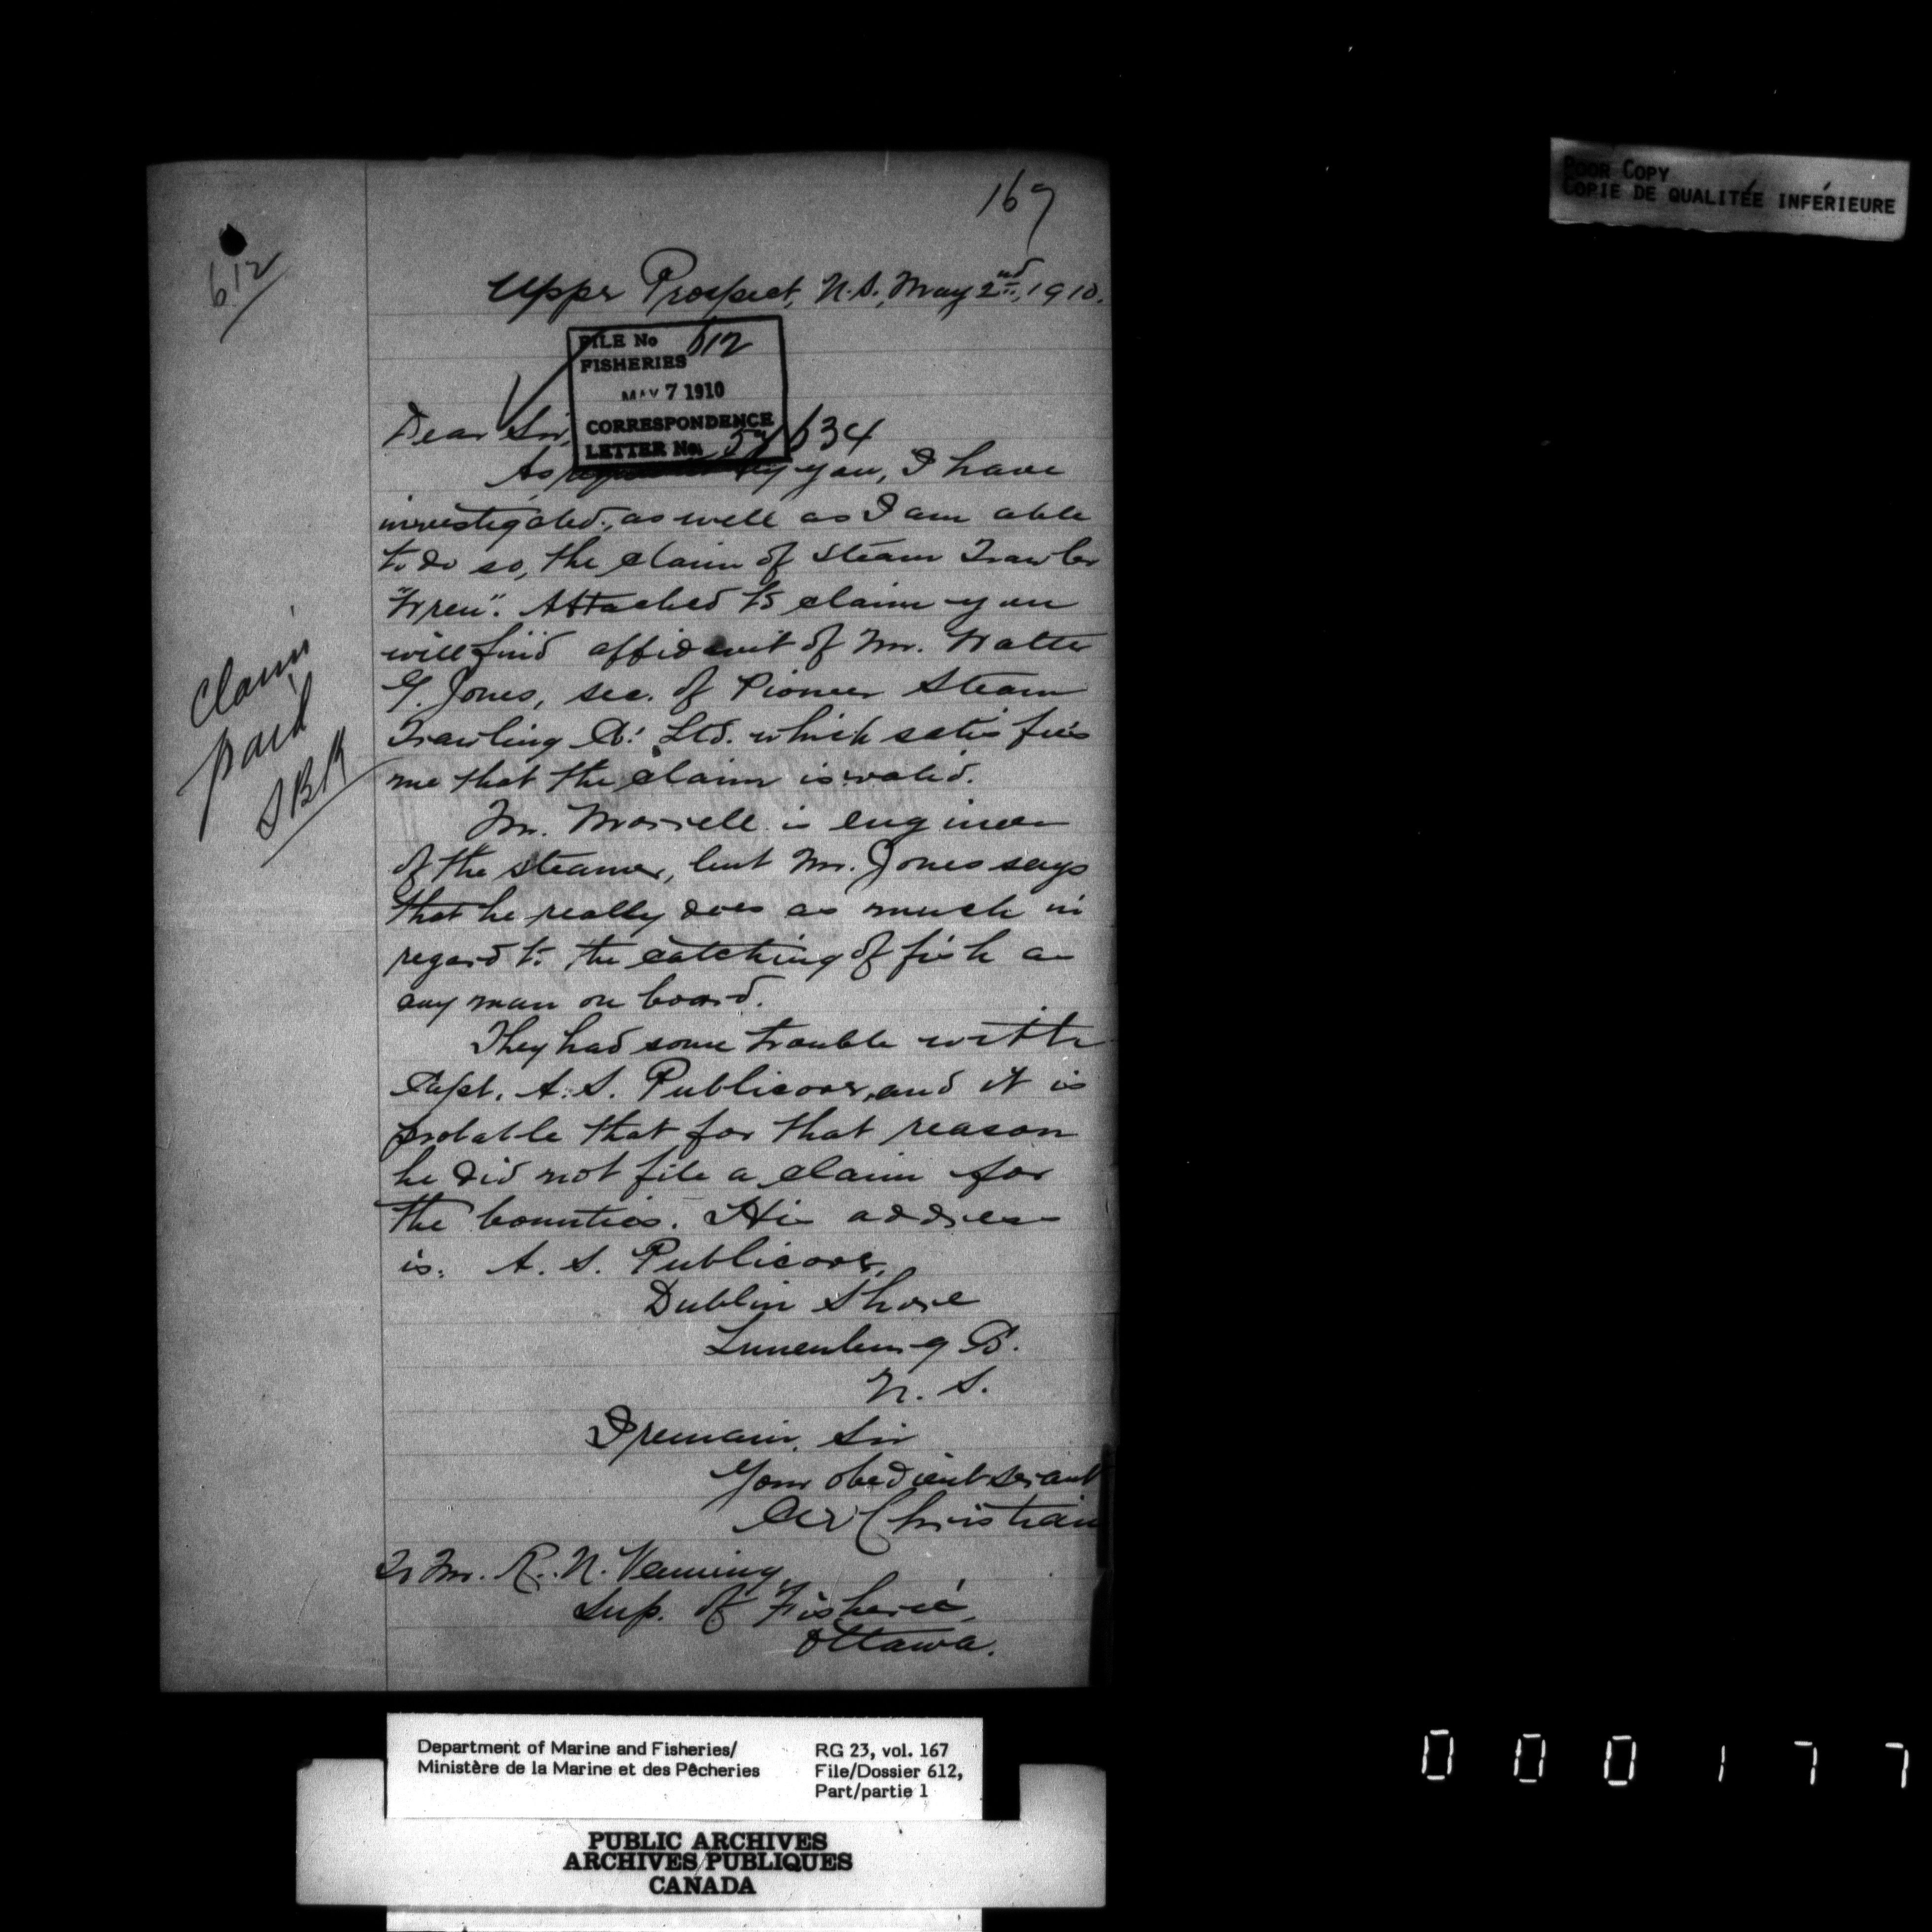 167
612
Upper Prospect, N.S., May 2nd, 1910.
FILE No 612
FISHERIES
MAY 7 1910
CORRESPONDENCE
LETTER No. 634
Dear Sir,
As by you, I have
investigated, as well as I am able
to do so, the claim of Steam Trawler
"Wren". Attached to claim you
will find affidavit of Mr. Walter
G. Jones, sec. of Pioneer Steam
Trawling Co. Ltd. which satisfies
me that the claim is valid.
Claim
paid
Mr. is engineer
of the steamer, but Mr. Jones says
that he really does as much in
regard to the catching of fish as
any man on board.
They had some trouble with
Capt. A. S. Publicover, and it is
probable that for that reason
he did not file a claim for
the bounties. His address
is. A. S. Publicover,
Dublin Shore
Lunenburg Co.
N. S.
I remain, Sir
Your obedient servant
Christian
To Mr. R. N. Venning
Sup. of Fisheries,
Ottawa.
POOR COPY
COPIE DE QUALITÉE INFÉRIEURE
Department of Marine and Fisheries/
Ministère de la Marine et des Pêcheries
RG 23, vol. 167
File/Dossier 612,
Part/partie 1
PUBLIC ARCHIVES
ARCHIVES PUBLIQUES
CANADA
000177